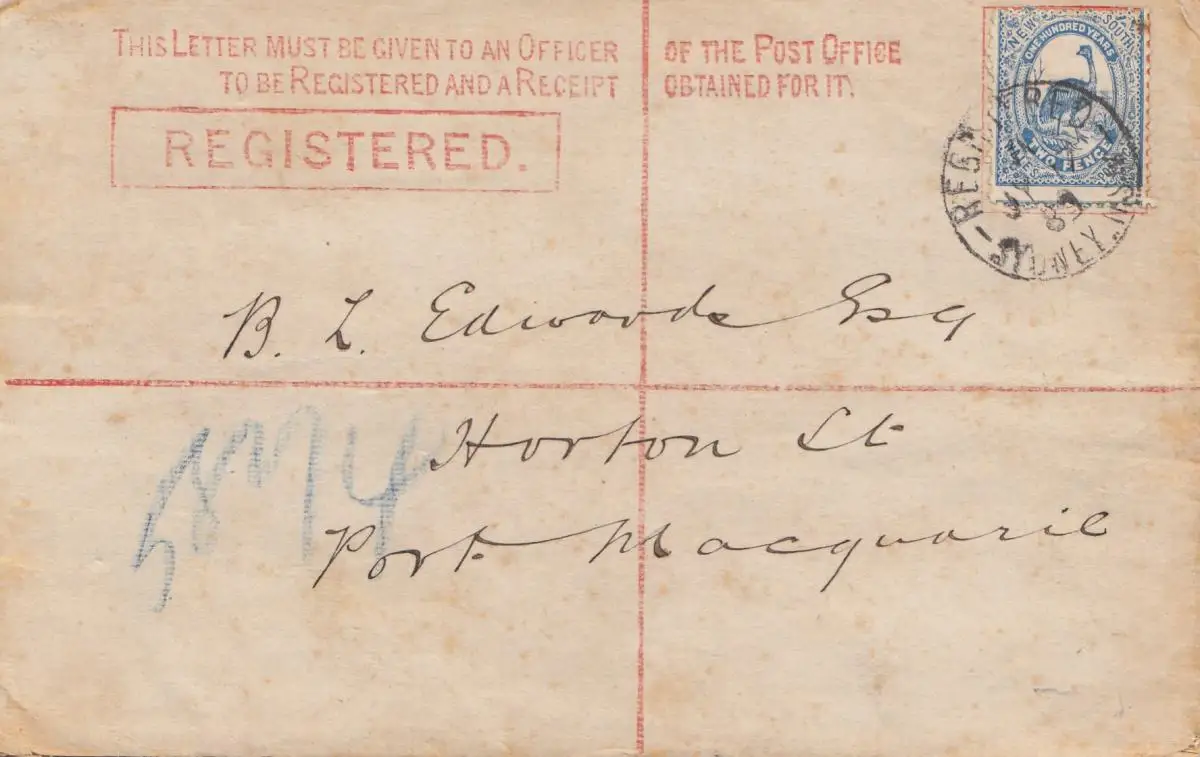 THIS LETTER MUST BE GIVEN TO AN OFFICER OF THE POST OFFICE
TO BE REGISTERED AND A RECEIPT OBTAINED FOR IT.
REGISTERED.
NEW SOUTH
ONE HUNDRED YEARS
TWO PENCE
SYDNEY. N.S.W
89
B. L. Edwards Esq
Horton St
Port Macquarie